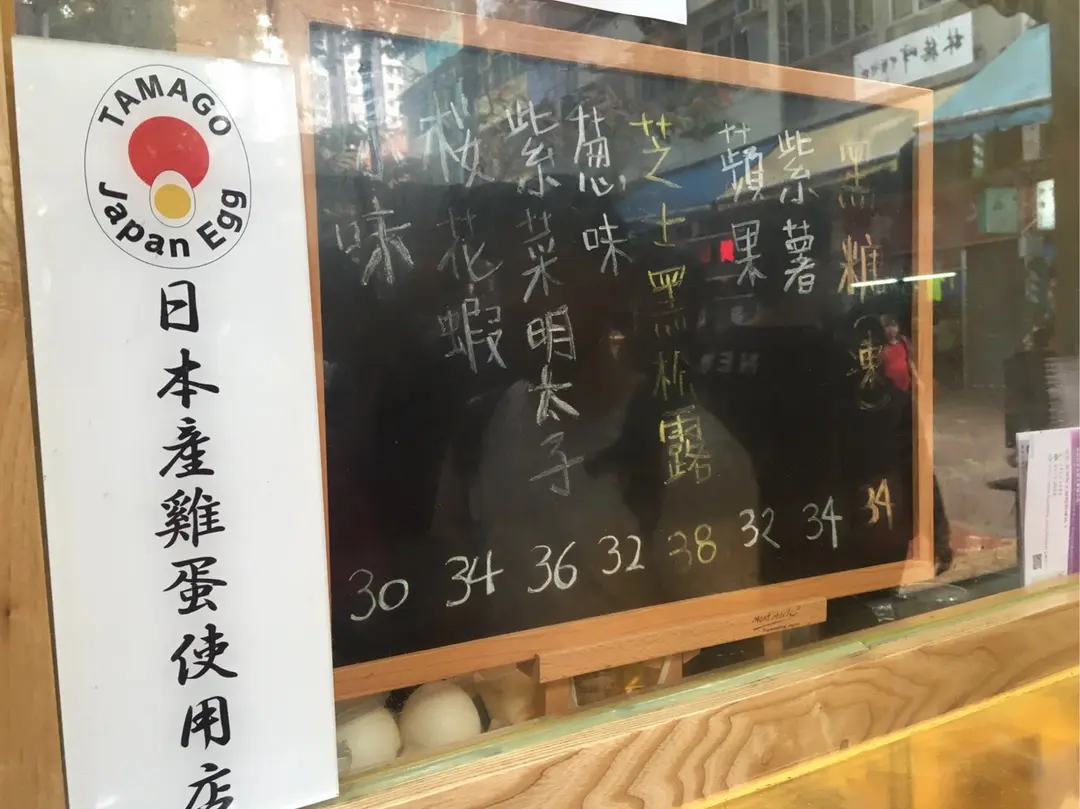 TAMAGO
Japan Egg
日本產雞蛋使用店
味
桜花蝦
紫菜明太子
葱味
芝士黑松露
蘋果
紫薯
黑糖(凍)
30 34 36 32 38 32 34 34